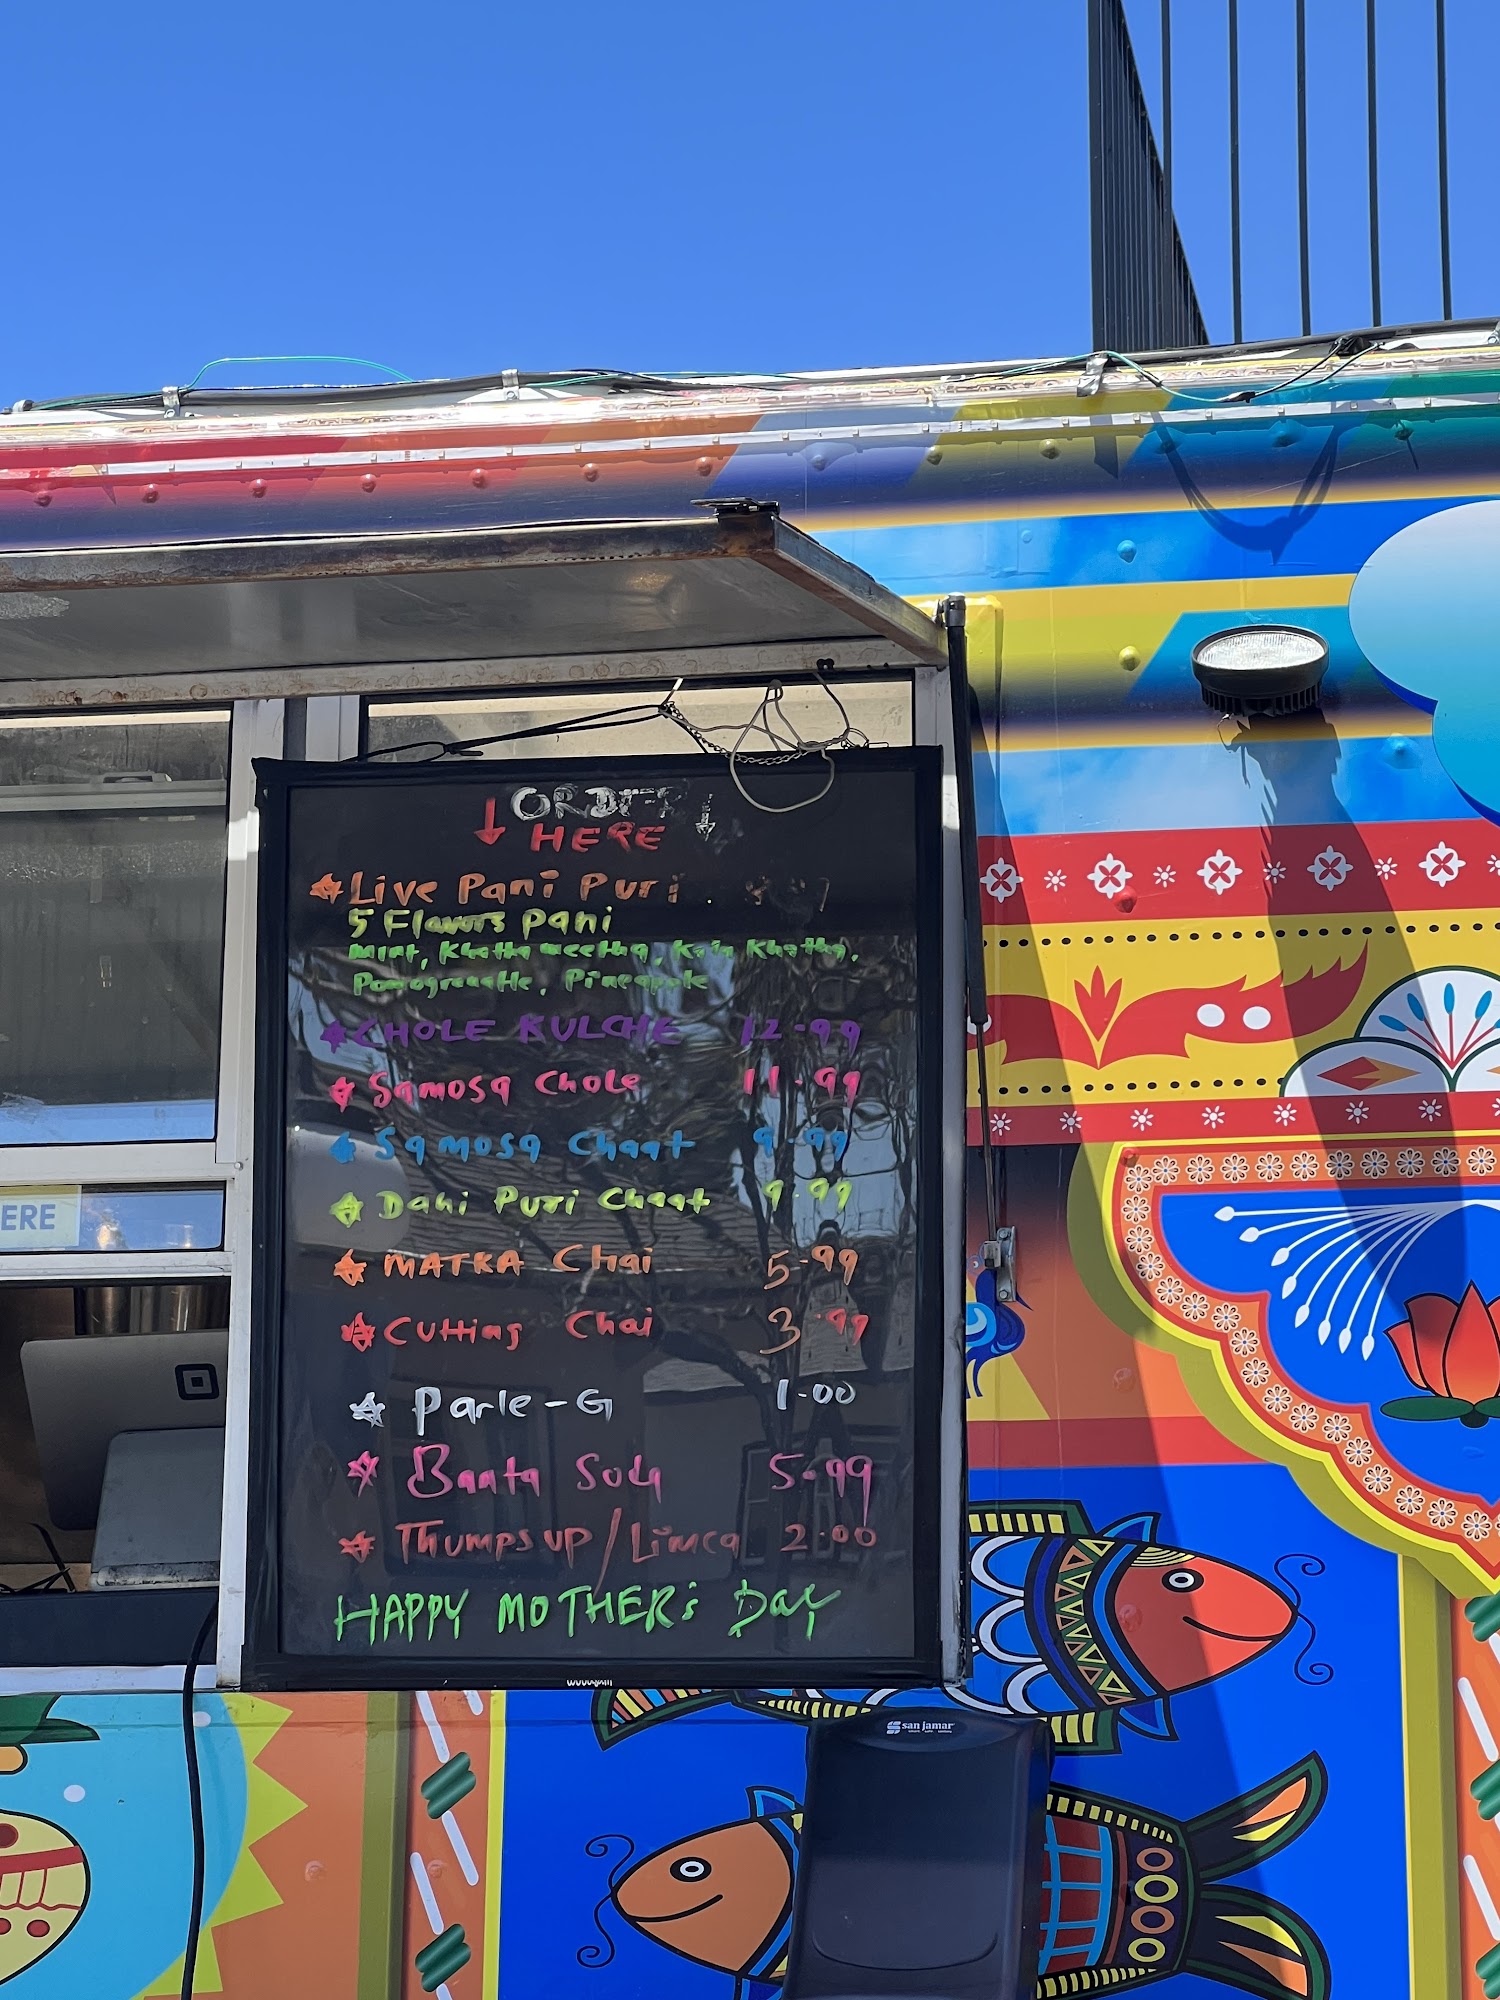 ORDER
HERE
Live Pani Puri
5 Flavors Pani
Mint, Khatta meetha, Khatta,
Pomogranatte, Pineapple
CHOLE KULCHE 12.99
Samosa Chole 11.99
Samosa Chaat 9.99
Dahi Puri Chaat 9.99
MATKA Chai 5.99
Cutting Chai 3.99
Parle-G 1.00
Banta Soda 5.99
Thumps up/Limca 2.00
HAPPY MOTHER's Day
ERE
san jamar